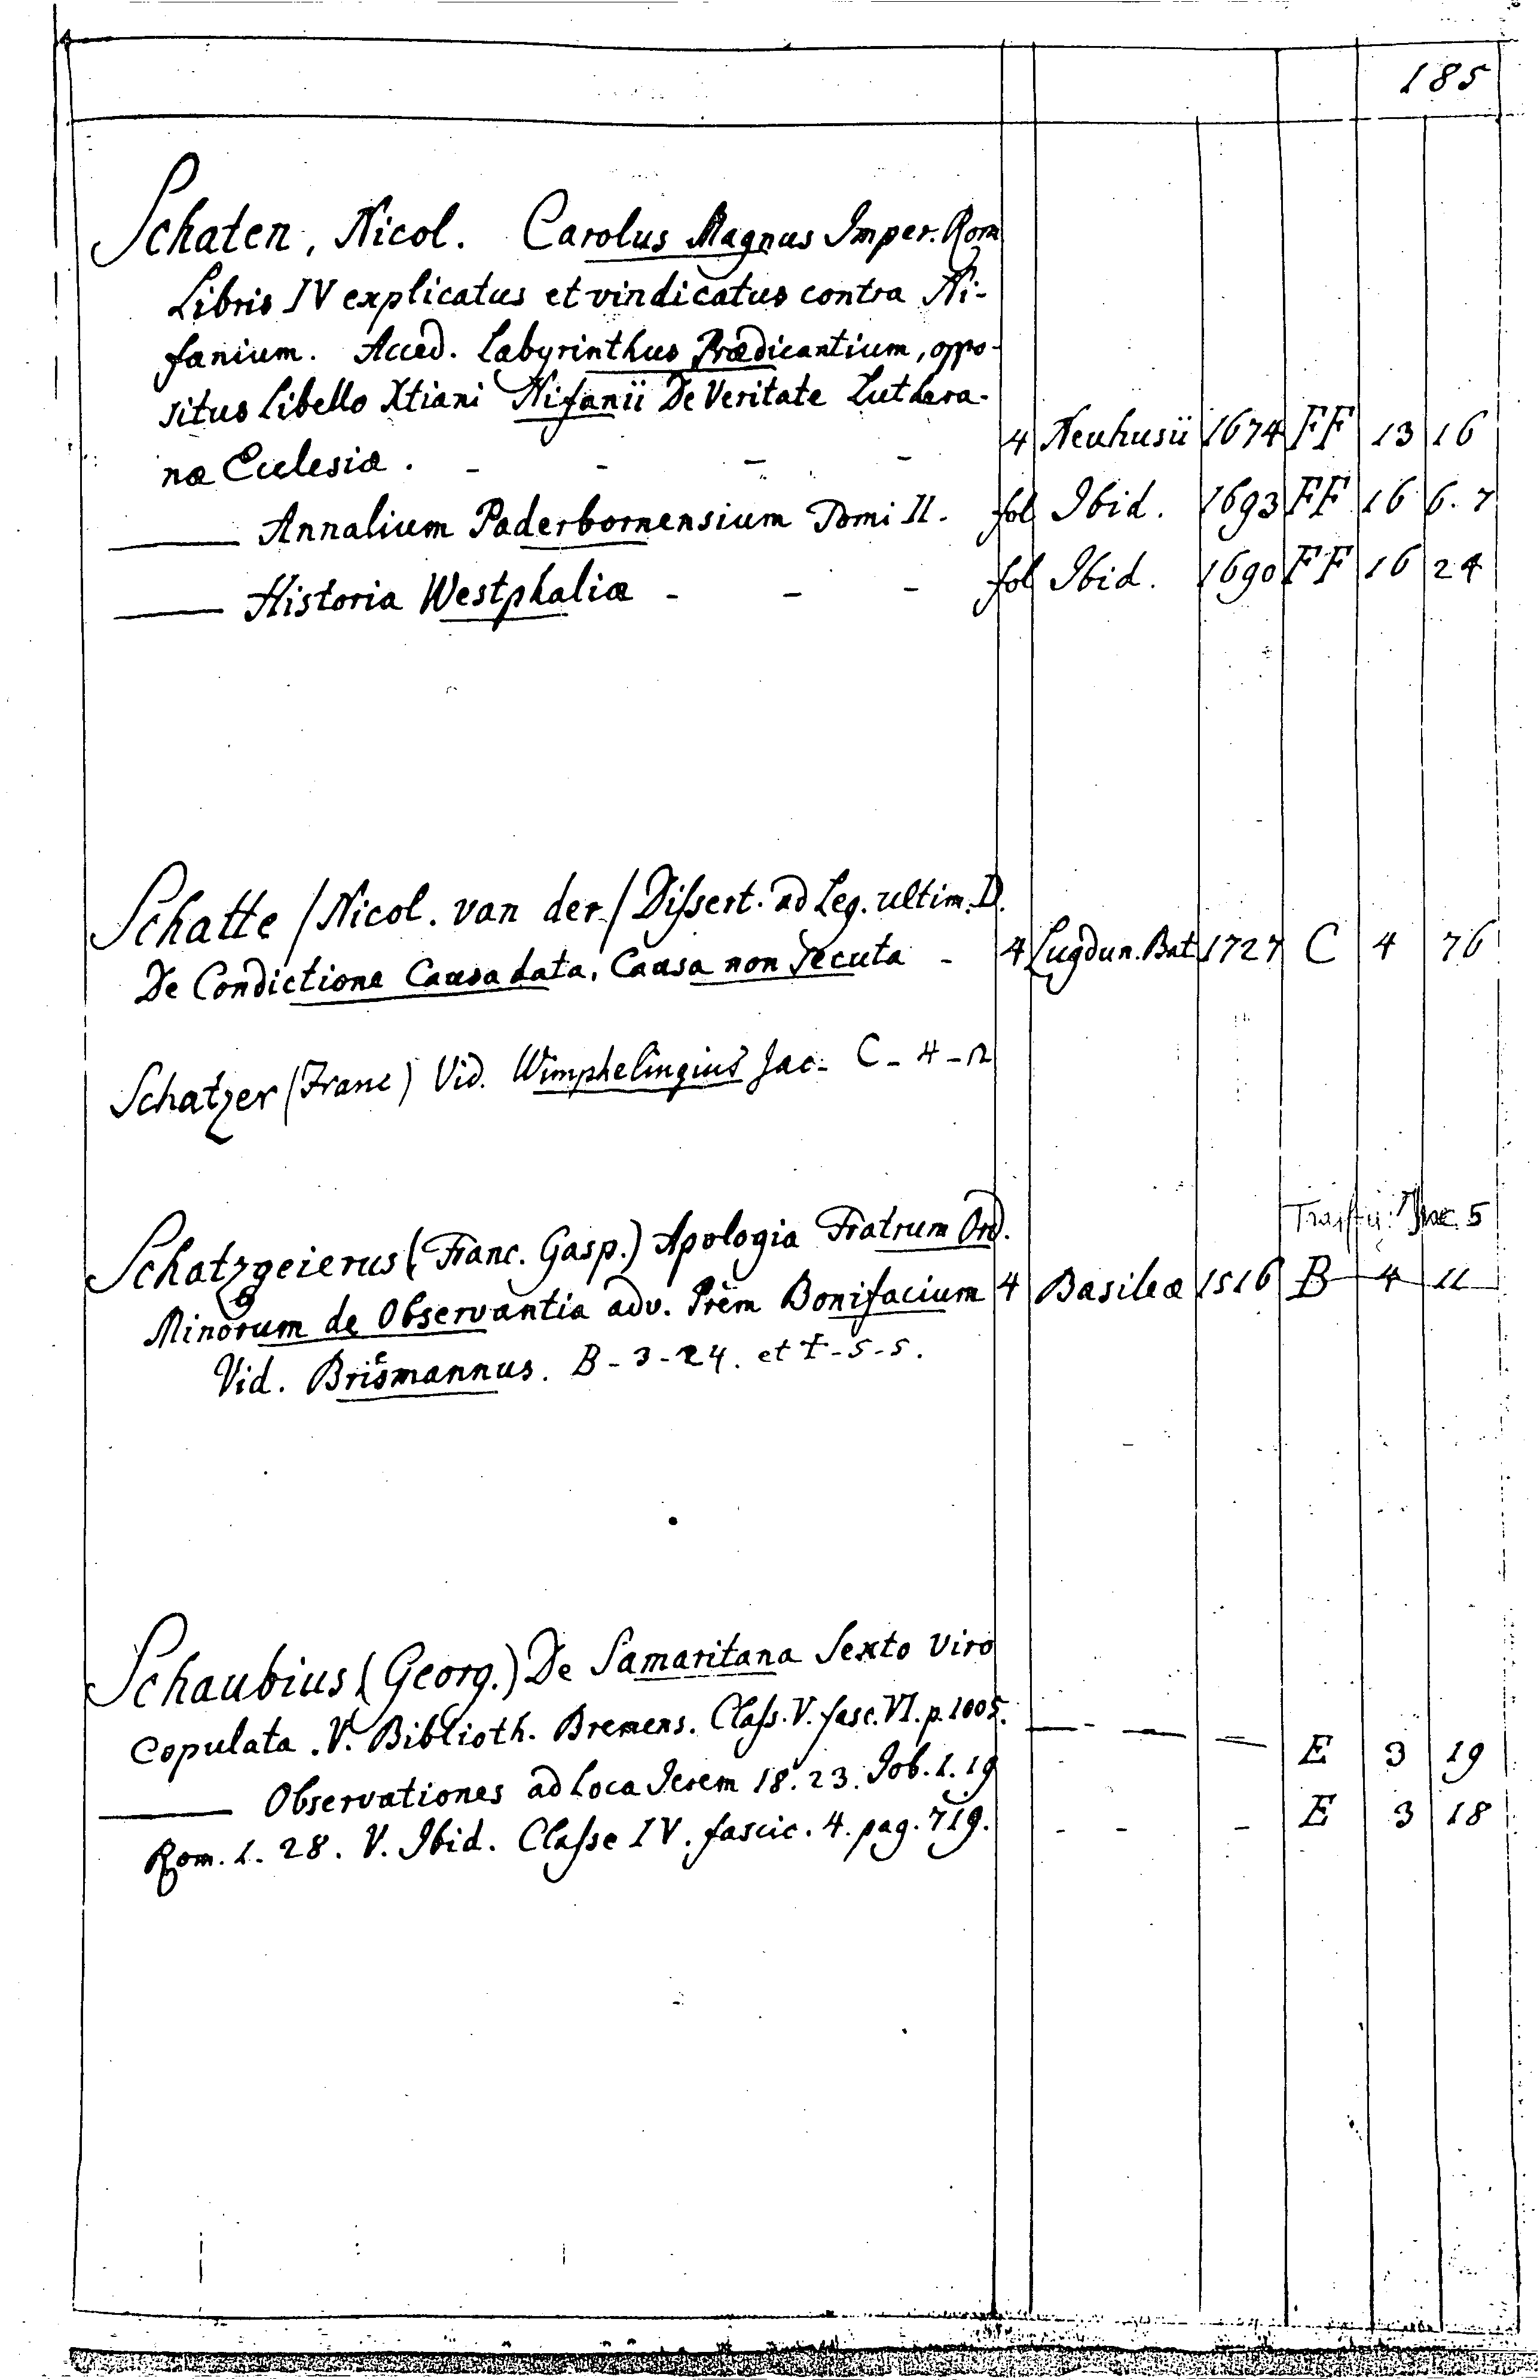 185
Schaten, Nicol. Carolus Magnus Imper. Rom
Libris IV explicatus et vindicatus contra Ni-
fanium. Acced. Labyrinthus Prædicantium, oppo-
situs Libello Xtiani Nifanii De Veritate Luthera-
næ Ecclesiæ . - - - - 4 Neuhusii 1674 FF 13 16
——— Annalium Paderbornensium Tomi II. fol Ibid. 1693 FF 16 6. 7
——— Historia Westphaliæ - - - fol Ibid. 1690 FF 16 24
Schatte /Nicol. van der/ Dissert. ad Leg. ultim. D.
De Condictione Causa data, Causa non Secuta - 4 Lugdun. Bat 1727 C 4 76
Schatzer (Franc) Vid. Wimphelingius Jac. C - 4 - 12
Inc. 5
Schatzgeierus (Franc. Gasp.) Apologia Fratrum Ord.
Minorum de Observantia adv. Prem Bonifacium 4 Basileæ 1516 B 4 11
Vid. Brismannus. B - 3 - 24. et I - 5 - 5.
Schaubius (Georg.) De Samaritana Sexto viro
copulata. V. Biblioth. Bremens. Class. V. fasc. VI. p. 1005. — - — — E 3 19
——— Observationes ad loca Jerem 18. 23. Job. 1. 19
Rom. 1. 28. V. Ibid. Classe IV. fascic. 4. pag. 719. - - - E 3 18